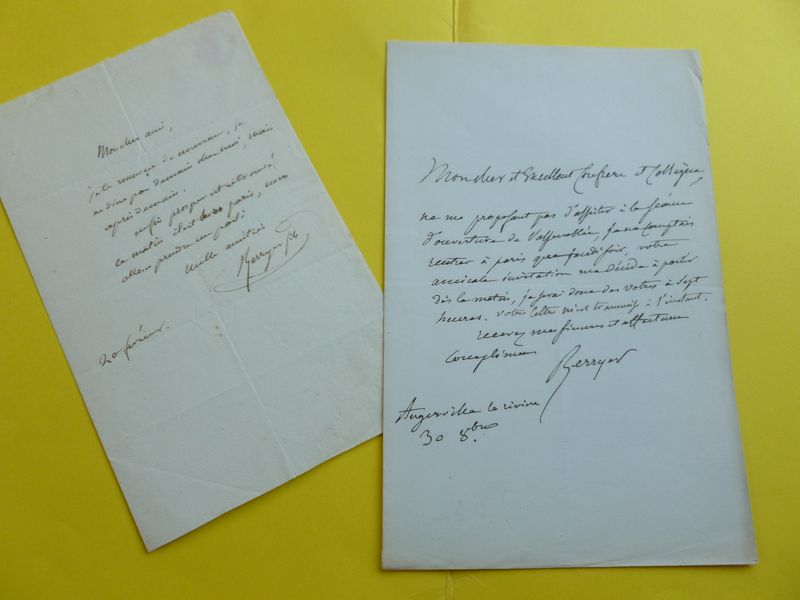 Mon cher ami,
je te remercie de nouveau, je
ne dîne pas demain chez moi, mais
après demain.
ce matin il est à paris, nous
allons prendre un parti.
mille amitiés
Berryer fils
20 février.
Mon cher et Excellent Confrère et Collègue,
ne me proposant pas d'assister à la Séance
d'ouverture de l'assemblée, je ne comptais
rentrer à paris que jeudi soir, votre
amicale invitation me décide à partir
dès le matin, je serai donc des vôtres à sept
heures. votre lettre m'est transmise à l'instant.
recevez mes sincères et affectueux
Complimens
Berryer
Angerville la rivière
30 8bre